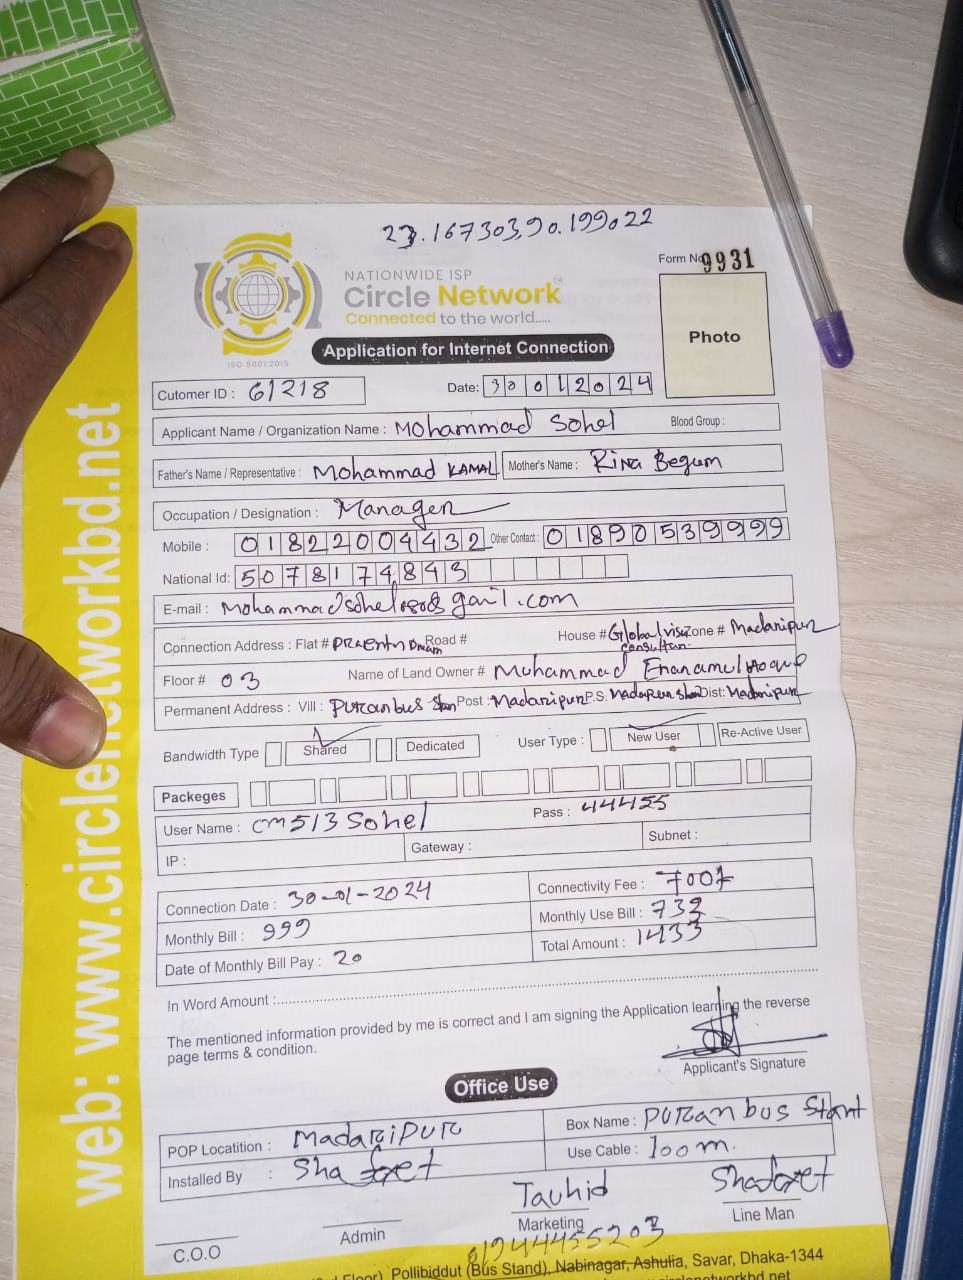 23.167303,90.199022
Form No 9931
NATIONWIDE ISP
Circle Network
Connected to the world.....
ISO 9001:2015
Application for Internet Connection
Photo
Cutomer ID : 61218
Date: 30 01 2024
Applicant Name / Organization Name : Mohammad Sohel Blood Group :
Father's Name / Representative : Mohammad KAMAL Mother's Name : Rina Begum
Occupation / Designation : Manager
Mobile : 01822004432 Other Contact : 01890539999
National Id: 5078174843
E-mail : gail.com
Connection Address : Flat # Road # House # Global Zone # Madaripur
Floor # 03 Name of Land Owner # Mohammad Enanamul Hoque
Permanent Address : Vill : Puranbus Stan Post : Madaripur P.S. Madaripur Dist: Madaripur
Bandwidth Type Shared Dedicated User Type : New User Re-Active User
Packeges
User Name : cm513 Sohel Pass : 44455
IP : Gateway : Subnet :
Connection Date : 30-01-2024 Connectivity Fee : 700
Monthly Bill : 999 Monthly Use Bill : 733
Date of Monthly Bill Pay : 20 Total Amount : 1433
In Word Amount :
The mentioned information provided by me is correct and I am signing the Application learning the reverse
page terms & condition.
Applicant's Signature
Office Use
POP Locatition : Madaripur Box Name : Puranbus Stant
Installed By : Use Cable : 100m.
Tauhid
C.O.O Admin Marketing Line Man
Pollibiddut (Bus Stand), Nabinagar, Ashulia, Savar, Dhaka-1344
web: www.circlenetworkbd.net